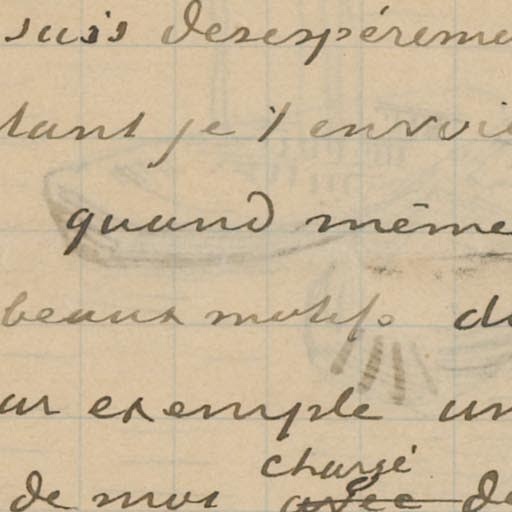 suis desespéreme
tant je t envoie
quand même
beaux motifs de
ar exemple un
chargé
de mos avec de